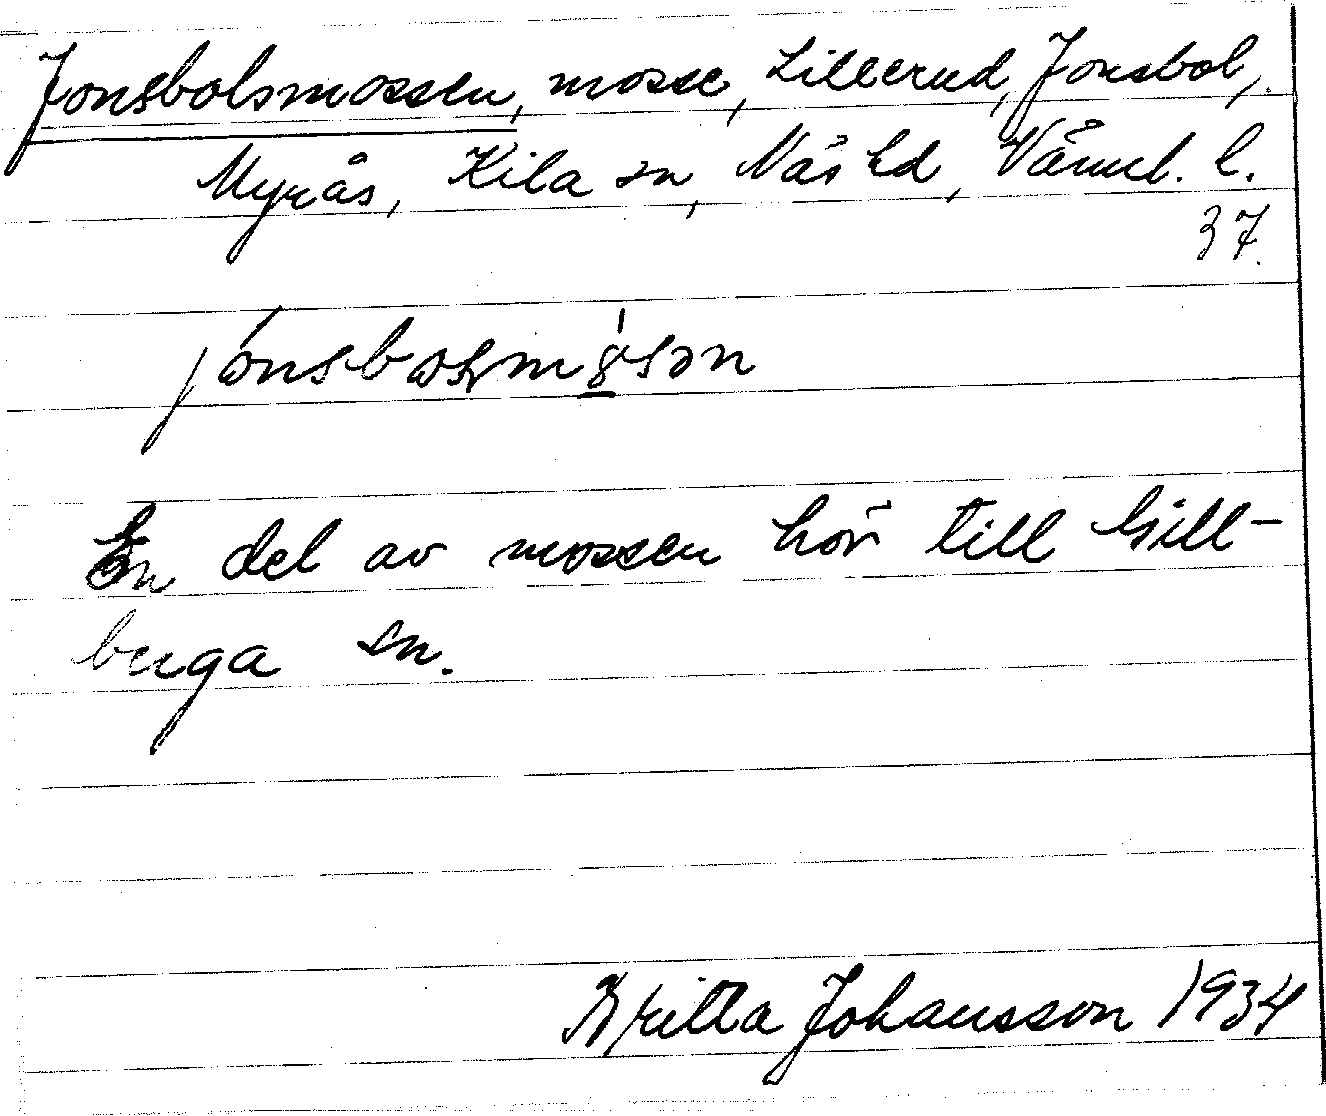 Jonsbolsmossen, mosse, Lillerud, Jonsbol,
Myrås, Kila sn, Näs hd, Värml. l.
37.
En del av mossen hör till Gill-
buga sn.
Britta Johansson 1934